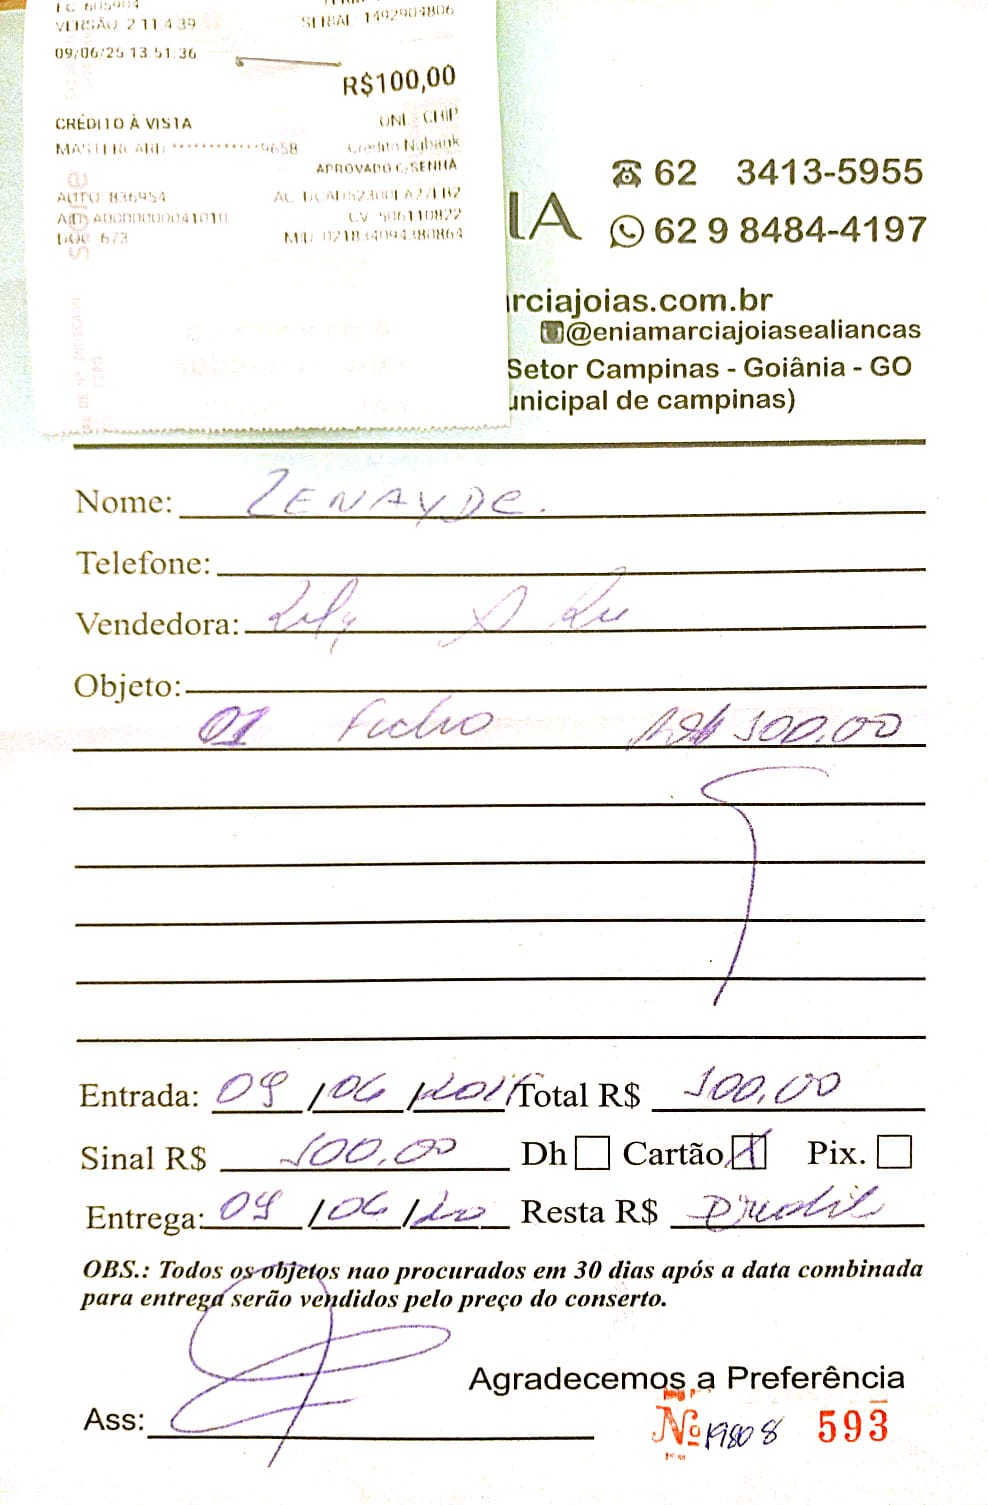 VERSÃO 2 11 4 39
SERIAL 1492904806
09/06/25 13 51:36
R$100,00
CRÉDITO À VISTA
MASTERCARD ************9658
Credito Nubank
APROVADO C/SENHA
AUTO 836954
AID A0000000041010
CV 506110822
DOC 673
MID 021834094380864
IA
62 3413-5955
62 9 8484-4197
rciajoias.com.br
@eniamarciajoiasealiancas
Setor Campinas - Goiânia - GO
unicipal de campinas)
Nome: ZENAYDE.
Telefone:
Vendedora:
Objeto:
01 Fecho R$ 100,00
Entrada: 09/06/2025 Total R$ 100,00
Sinal R$ 100,00 Dh Cartão X Pix.
Entrega: 09/06/ Resta R$
OBS.: Todos os objetos nao procurados em 30 dias após a data combinada
para entrega serão vendidos pelo preço do conserto.
Agradecemos a Preferência
Ass:
Nº 19808 593